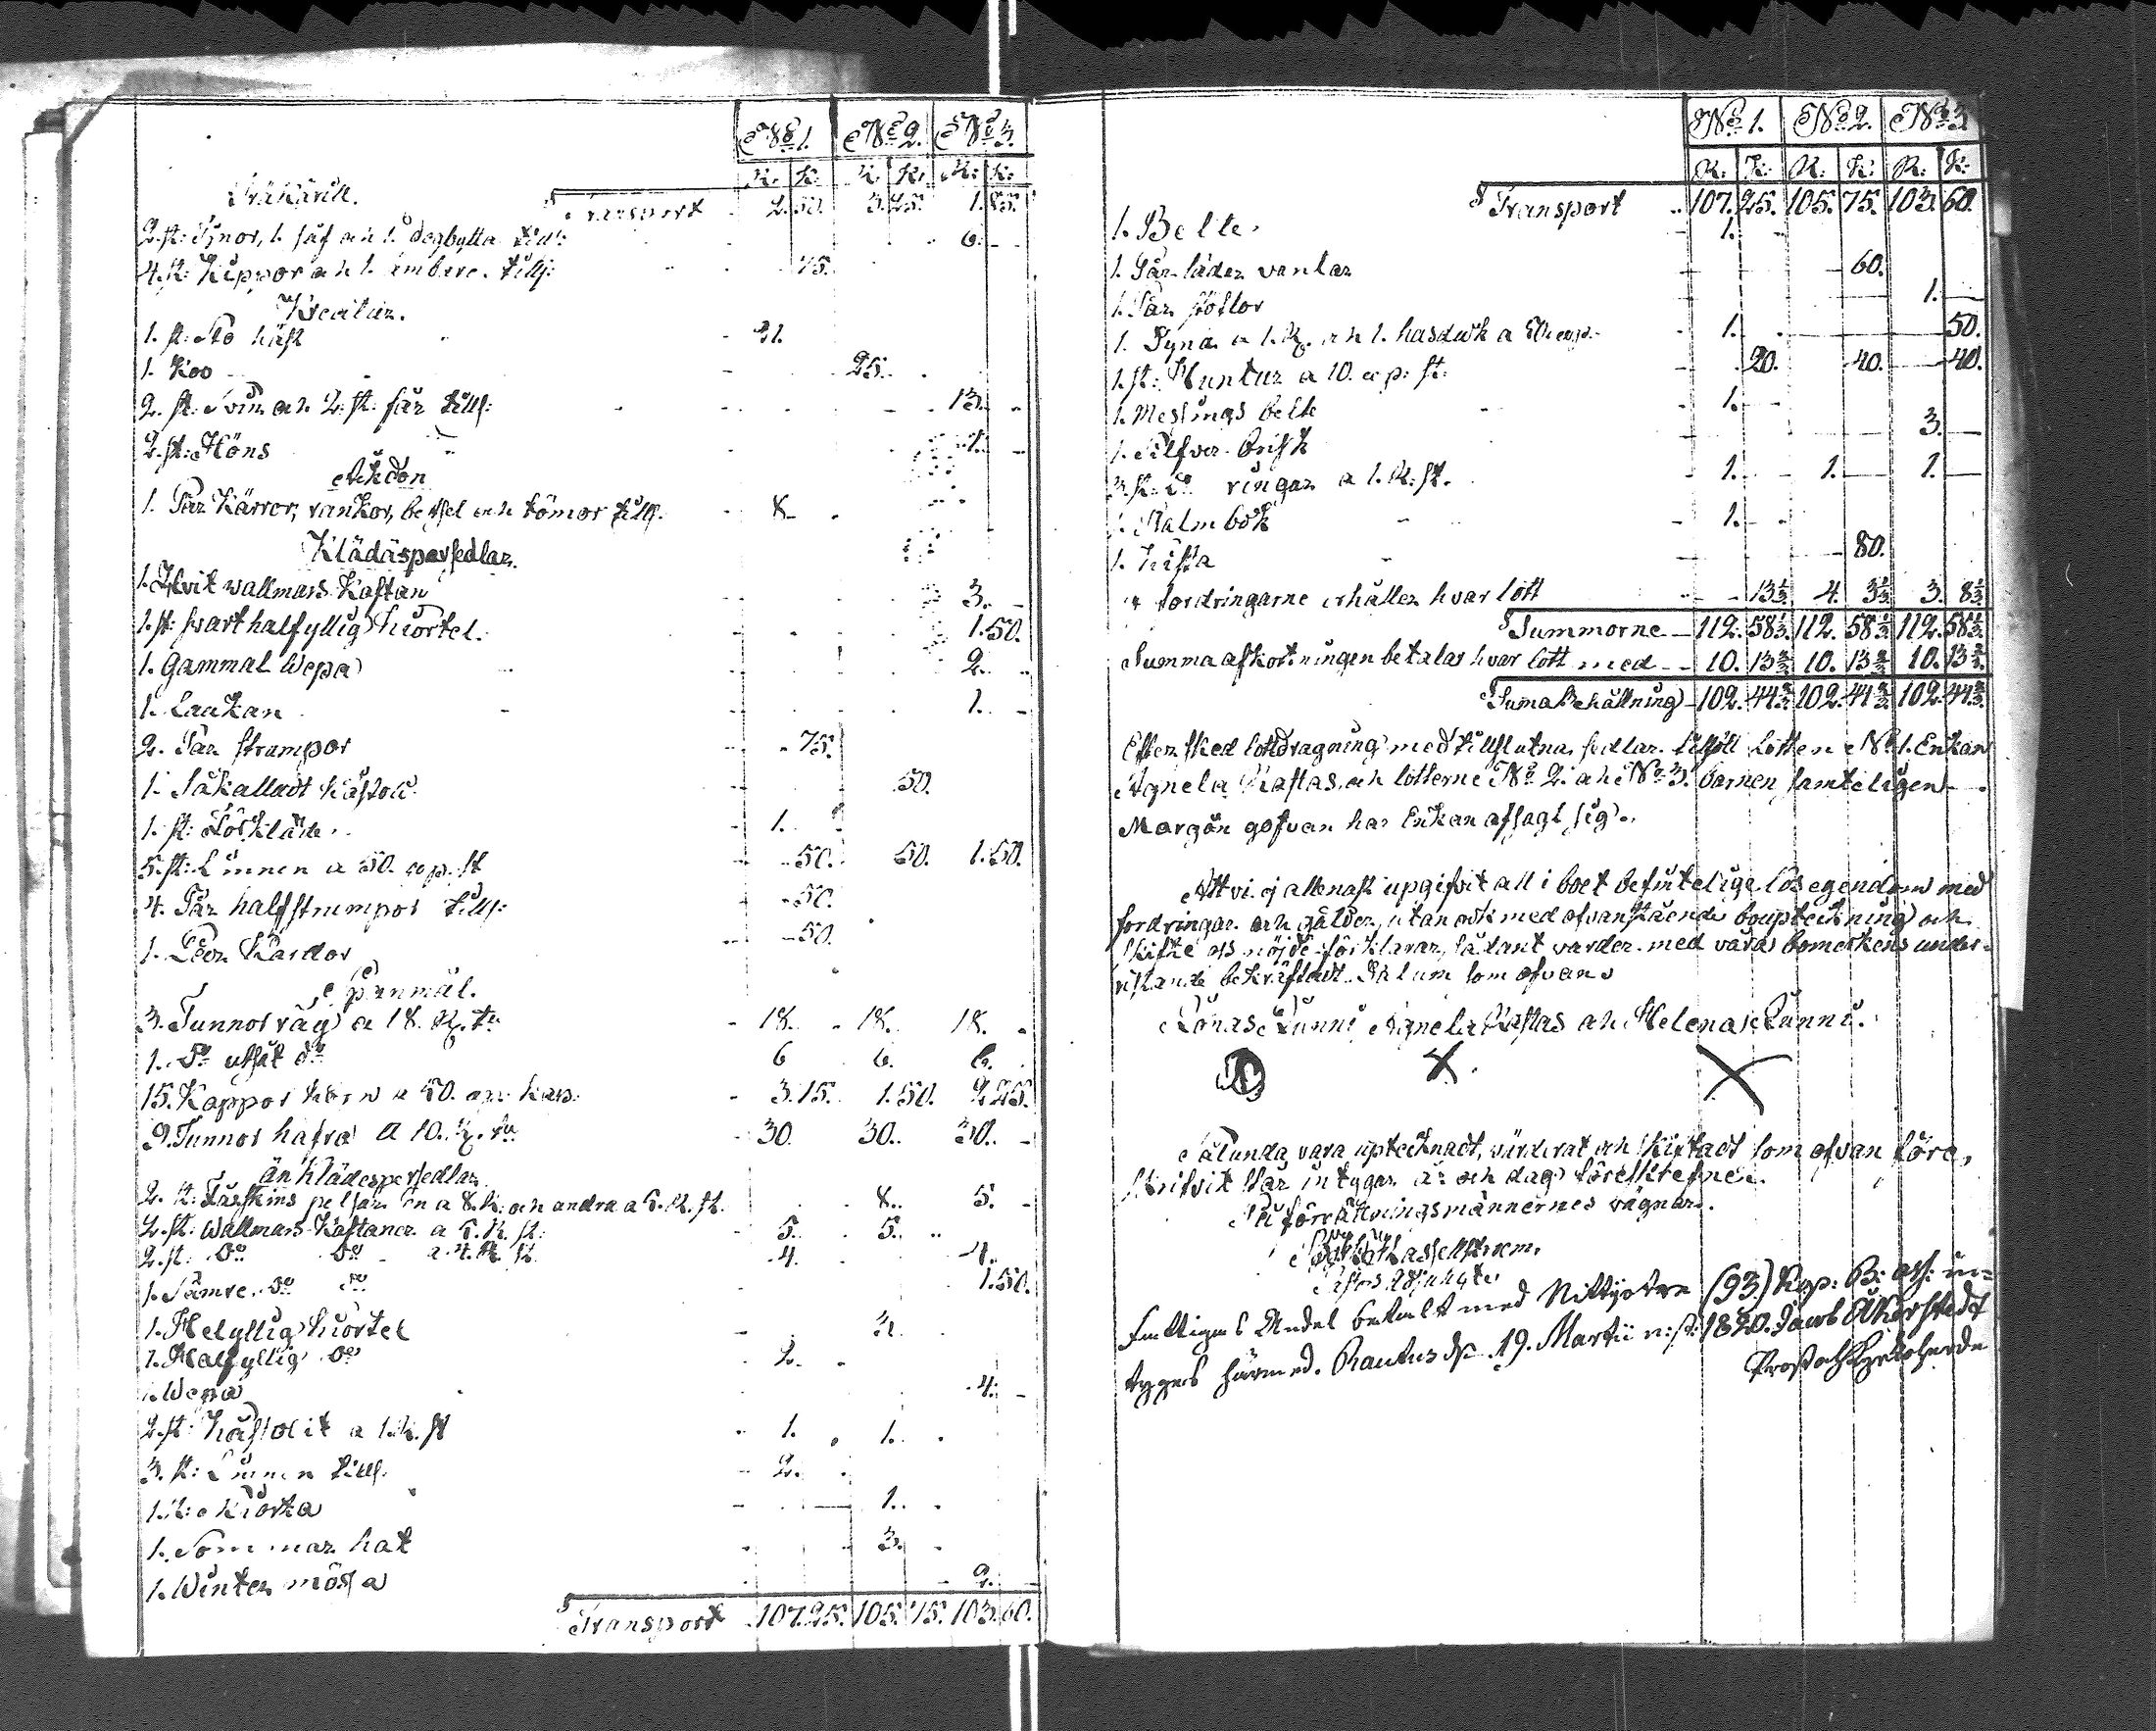 No 1. No 2. No 3.
R. K. R. K. R. K.
Träkäril.
Transport 2. 50. 3. 25. 1. 85.
2. st: Tynor, 1. såf och 1. degbytta till: 6.
4. st: Kippor och 1. ämbare. tillh: 75.
Kreatur.
1. st: Sto häst 31.
1. Koo 25.
2. st: Svin och 2. st: får tills: 13.
2. st: Höns 1.
Åkdon
1. Par Kärror, rankor, betsel och tömor tills. 8.
Klädespersedlar.
1. Hvit wallmars Kaftan 3.
1. st: svart halfyllig kiortel. 1. 50.
1. Gammal Wepa 2.
1. Laakan 1.
2. Par strumpor 75.
1. Såkalladt håstoli 50.
1. st: Förkläde 1.
5. st: Linnen a 50. cop. st 50. 50. 1. 50.
4. Par halfstrumpor tills: 50.
1. Par Kardor 50.
Spanmål.
3. Tunnor råg a 18. R. tn 18. 18. 18.
1. Do utsåt do 6 6. 6.
15. Kappor korn a 50. cop. kap. 3. 75. 1. 50. 2. 25.
9. Tunnor hafra a 10. R. tn 30. 30. 30.
än Klädespersedlar
2. st: Fårskins pelsar en a 8. R. och andra a 5. R. st. 8. 5.
2. st: Wallmars Kaftaner a 5. R. st. 5. 5.
2. st: do do a 4. R. st. 4. 4.
1. Sämre do do 1. 50.
1. Helyllig kiortel 3.
1. Halfyllig do 2.
1. Wepa 4.
2. st: håstolit a 1. R. st 1. 1.
3. st: Linnen tills. 2.
1. st: skiorta 1.
1. Sommar hat 3.
1. Winter mössa 2.
Transport 107. 25. 105. 75. 103. 60.
No 1. No 2. No 3
R. K. R. K. R. K.
Transport 107. 25. 105. 75. 103. 60.
1. Belte 1.
1. Par läder vantar 60.
1. Par stöflor 1.
1. Tyna a 1. R. och 1. hasduk a 50 cop. 1. 50.
1. st: Huntur a 10. cop: st: 20. 40. 40.
1. Messings belte 1.
1. Silfver Brisk 3.
3. st: do ringar a 1. R. st. 1. 1. 1.
1. Psalmbok 1.
1. Kista 80.
fordringarne erhåller hvar lott 13 1/3 4. 3 1/3 3. 8 1/3
Summorne 112. 58 1/3 112. 58 1/3 112. 58 1/3
Summa afkortningen betalar hvar lott med 10. 13 2/3 10. 13 2/3 10. 13 2/3
Suma Behållning 102. 44 2/3 102. 44 2/3 102. 44 2/3
Efter sked lottdragning med tillslutna sedlar tillföll Lotten No 1. Enkan
Agneta Rastas, och lotterne No 2. och No 3. barnen samteligen.
Margongofvan har Enkan afsagt sig.
Att vi ej allenast upgifvit all i boet befintelige lös egendom med
fordringar och gälder, utan ock med ofvanstående bouptekning och
skifte oss nöjde förklarar, sådant varder med våra bomerkens under-
ristande bekräftadt. Datum som ofvan
Jonas Kunni Agneta Rastas och Helena Kunni.
Sålunda vara uptecknadt, värderat och skiftadt som ofvan före,
skrifvit står intygar år och dag föreskrefne.
På förrättningsmännernes vägnar.
Hasselstroem.
Fattiges Andel betalt med Nittiotre (93) Kop: B: ass: in-
tyges härmed. Rautus d. 19. Martii n: st: 1820. Jacob Åkerstedt
Prost och Kyrkoherde